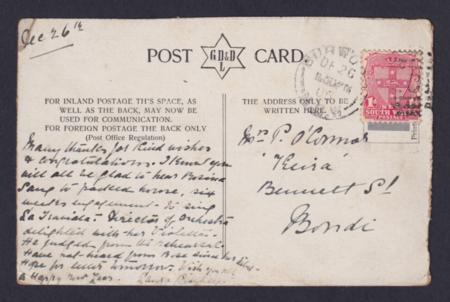 Dec 26th
POST CARD
G D & D
L
BURWOOD
DE 26
N.S.W
1d
SOUTH
POSTAGE
FOR INLAND POSTAGE THIS SPACE, AS
WELL AS THE BACK, MAY NOW BE
USED FOR COMMUNICATION.
FOR FOREIGN POSTAGE THE BACK ONLY
(Post Office Regulation)
THE ADDRESS ONLY TO BE
WRITTEN HERE.
Many thanks for kind wishes
& congratulations. I know you
will all be glad to hear
sang to packed house, six
weeks engagement - to sing
La Traviata. Director of Orchestra
delighted with her Violetta.
He judged from the rehearsal.
Have not heard from Rose since her
Hope for news tomorrow. With you all
a Happy New Year.
Mrs P. O'Connor
'Keira'
Bennett St
Bondi